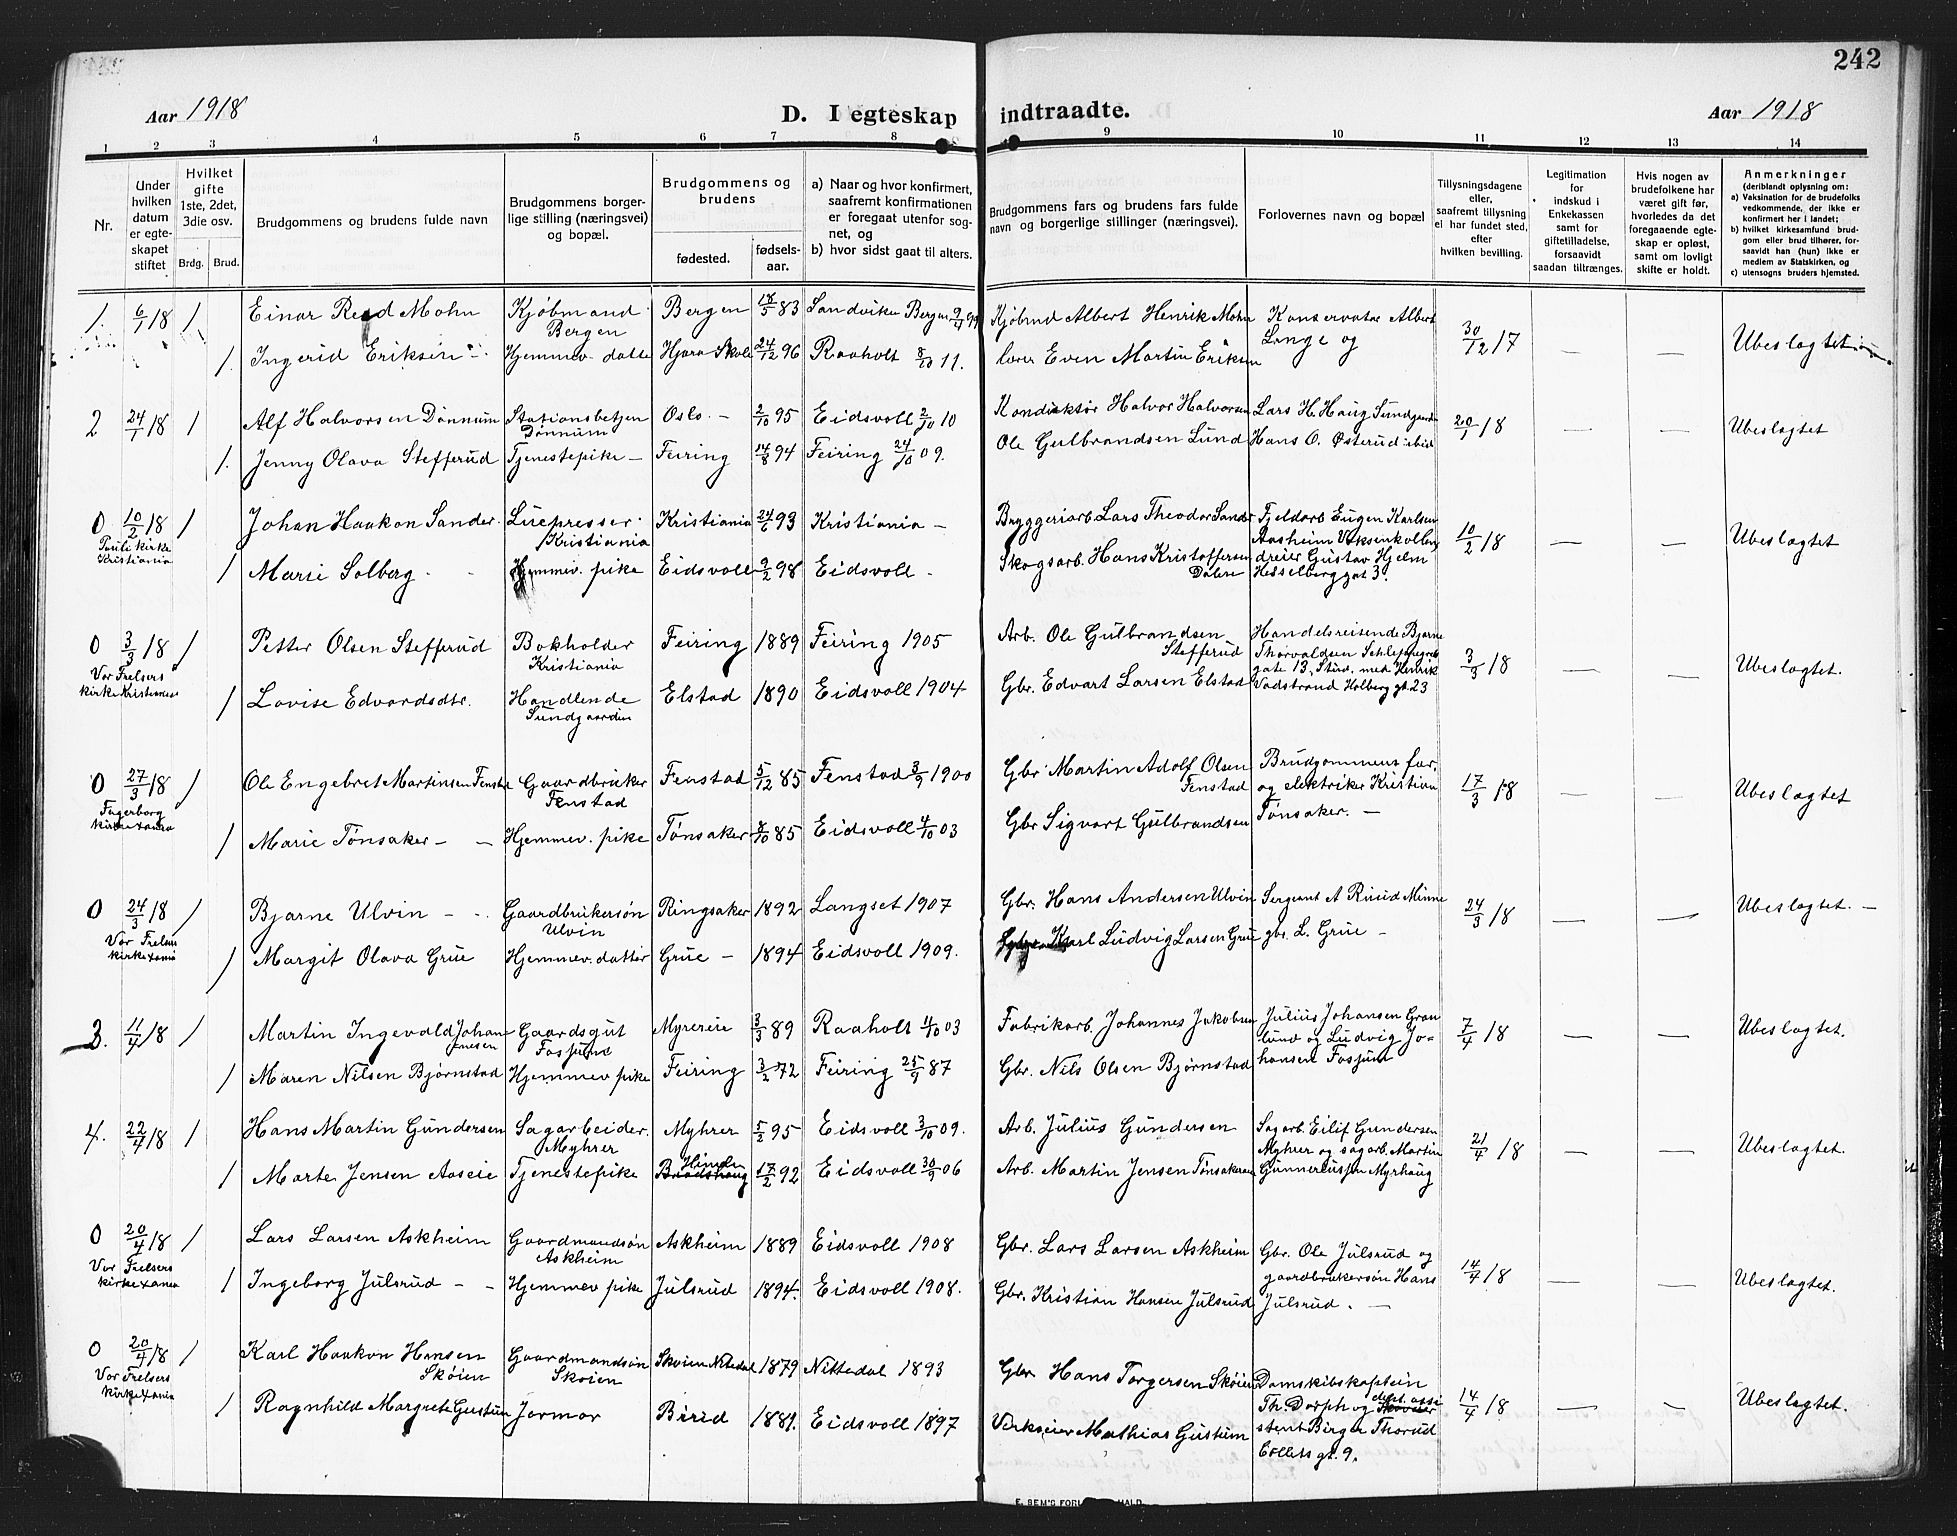 242
Aar 1918
D. I egteskap indtraadte.
Aar 1918
1 2 3 4 5 6 7 8 9 10 11 12 13 14
Nr.
Under hvilken datum er egteskapet stiftet
Hvilket gifte 1ste, 2det, 3die osv.
Brdg. Brud.
Brudgommens og brudens fulde navn
Brudgommens borgerlige stilling (næringsvei) og bopæl.
Brudgommens og brudens
fødested.
fødselsaar.
a) Naar og hvor konfirmert, saafremt konfirmationen er foregaat utenfor sognet, og
b) hvor sidst gaat til alters.
Brudgommens fars og brudens fars fulde navn og borgerlige stillinger (næringsvei).
Forlovernes navn og bopæl
Tillysningsdagene eller, saafremt tillysning ei har fundet sted, efter hvilken bevilling.
Legitimation for indskud i Enkekassen samt for giftetilladelse, forsaavidt saadan tiltrænges.
Hvis nogen av brudefolkene har været gift før, hvorledes da det foregaaende egteskap er opløst, samt om lovligt skifte er holdt.
Anmerkninger
(deriblandt oplysning om:
a) Vaksination for de brudefolks vedkommende, der ikke er konfirmert her i landet;
b) hvilket kirkesamfund brudgom eller brud tilhører, forsaavidt han (hun) ikke er medlem av Statskirken, og
c) utensogns bruders hjemsted.
1. 6/1 18 1 Einar Reed Mohn Kjøbmand Bergen Bergen 18/5 83 Sandviken Bergen Kjøbmd Albert Henrik Mohn Konservator Albert Lange og 30/12 17 — — Ubeslagtet
1. Ingerid Eriksen Hjemmev. datter Skole 24/12 96 Raaholt 8/10 11. lærer Even Martin Eriksen
2 24/1 18 1 Alf Halvorsen Dønnum Stationsbetjen Dønnum Oslo. — 2/10 95 Eidsvoll 2/10 10 Konduktør Halvor Halvorsen Lars H. Haug Sundgaarden 20/1 18 — — Ubeslagtet
1. Jenny Olava Stefferud Tjenestepike — Feiring 14/8 94 Feiring 24/10 09. Ole Gulbrandsen Lund Hans O. Østerud ibid
0 10/2 18 1 Johan Haakon Sander. Kristiania Kristiania 24/6 93 Kristiania — Bryggeriarb Lars Theodor Sander Fjeldarb Eugen Karlsen Aasheim 10/2 18 — — Ubeslagtet
Pauli kirke Kristiania
1 Marie Solberg Hjemmev. pike Eidsvoll 9/2 98 Eidsvoll - Skogsarb. Hans Kristoffersen dreier Gustav Hjelm Hesselberg gat 3.
0 3/3 18 1 Petter Olsen Stefferud Bokholder Kristiania Feiring 1889 Feiring 1905 Arb. Ole Gulbrandsen Stefferud Handelsreisende Bjarne Thorvaldsen Schleppegrels gate 13, Stud. med Henrik 3/3 18 — — Ubeslagtet.
Vor Frelsers kirke Kristiania
1 Lovise Edvardsdtr. Handlende Sundgaarden Elstad 1890 Eidsvoll 1904 Gbr. Edvart Larsen Elstad Vadstrand Holberg gt 23
0 27/3 18 1 Ole Engebret Martinsen Fenstad Gaardbruker Fenstad Fenstad 5/12 85 Fenstad 3/9 1900 Gbr Martin Adolf Olsen Fenstad Brudgommens far, og elektriker Kristian 17/3 18 — — Ubeslagtet
Fagerborg kirke Xania
1 Marie Tønsaker — — Hjemmev. pike Tønsaker 8/10 85 Eidsvoll 4/10 03 Gbr Sigvart Gulbrandsen Tønsaker. —
0 24/3 18 1 Bjarne Ulvin — Gaardbrukersøn Ulvin Ringsaker 1892 Langset 1907 Gbr. Hans Andersen Ulvin Sergeant A Ruud Minne 24/3 18 — — Ubeslagtet. —
Vor Frelsers kirke Xania
1 Margit Olava Grue Hjemmev. datter Grue — 1894 Eidsvoll 1909. Karl Ludvig Larsen Grue gbr. L. Grue —
3. 11/4 18 1 Martin Ingevald Johannesen Gaardsgut Fossum Myrereie 3/3 89 Raaholt 4/10 03 Fabrikarb. Johannes Jakobsen Julius Johansen Granlund og Ludvig Johansen Fossum 7/4 18 — — Ubeslagtet.
1 Maren Nilsen Bjørnstad Hjemmev pike Feiring 3/2 72 Feiring 25/9 87 Gbr. Nils Olsen Bjørnstad
4. 22/4 18 1 Hans Martin Gundersen Sagarbeider. Myhrer Myhrer 5/2 95 Eidsvoll 3/10 09. Arb. Julius Gundersen Sagarb. Eilif Gundersen Myhrer og sagarb. Martin Gunneriussen Myrhaug 21/4 18 — — Ubeslagtet.
1 Marte Jensen Aaseie Tjenestepike 17/2 92 Eidsvoll 30/9 06 Arb. Martin Jensen Tønsakereie
0 20/4 18 1 Lars Larsen Askheim Gaardmandsøn Askheim Askheim 1889 Eidsvoll 1908 Gbr. Lars Larsen Askheim Gbr. Ole Julsrud og gaardbrukersøn Hans Julsrud. — 14/4 18 — — Ubeslagtet.
Vor Frelsers kirke Xania
1 Ingeborg Julsrud — - Hjemmev pike Julsrud 1894. Eidsvoll 1908. Gbr. Kristian Hansen Julsrud
0 20/4 18 1 Karl Haakon Hansen Skøien Gaardmandsøn Skøien Skøien Nitedal 1879 Nittedal 1893 Gbr Hans Torgersen Skøien Damskibskaptein Th. Dorph og assistent Birger Thorud Colletts gt. 9. 14/4 18 — — Ubeslagtet.
Vor Frelsers kirke Xania
1 Ragnhild Margrete Gustum Jormor Birid 1881. Eidsvoll 1897 Verkseier Mathias Gustum